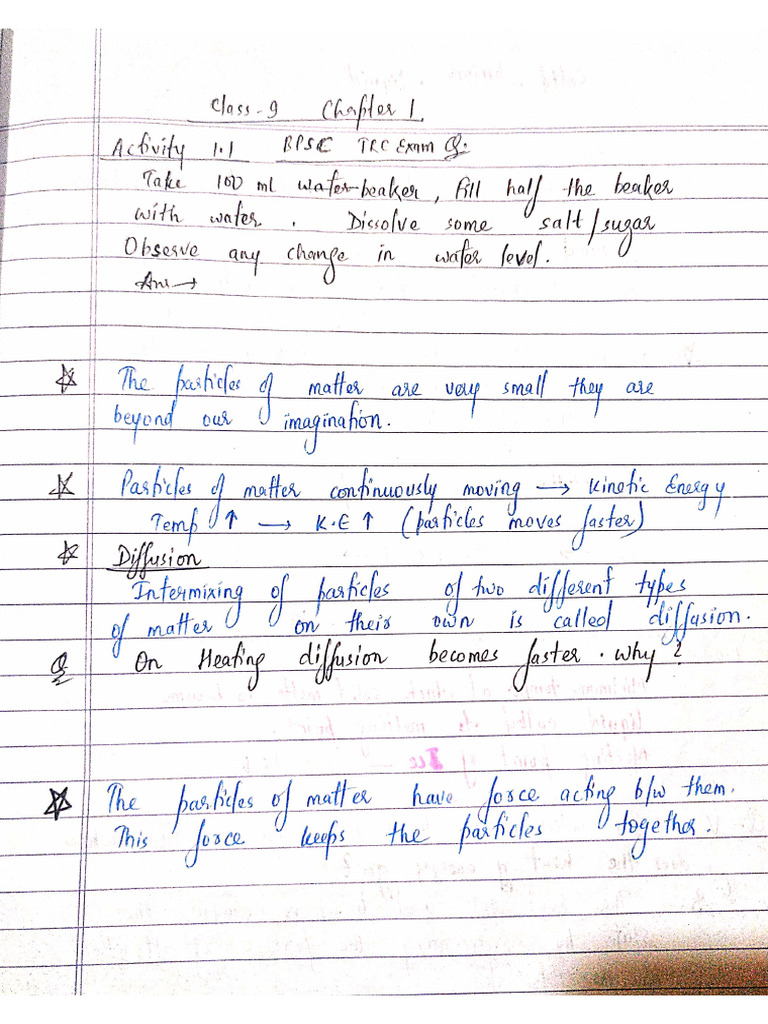 Class-9 Chapter 1
Activity 1.1 BPSC TRE Exam Q.
Take 100 ml water-beaker, fill half the beaker
with water. Dissolve some salt/sugar
Observe any change in water level.
Ans →
☆ The particles of matter are very small they are
beyond our imagination.
☆ Particles of matter continuously moving → Kinetic Energy
Temp ↑ → K.E ↑ (particles moves faster)
☆ Diffusion
Intermixing of particles of two different types
of matter on their own is called diffusion.
Q On Heating diffusion becomes faster. why?
Ice
☆ The particles of matter have force acting b/w them.
This force keeps the particles together.